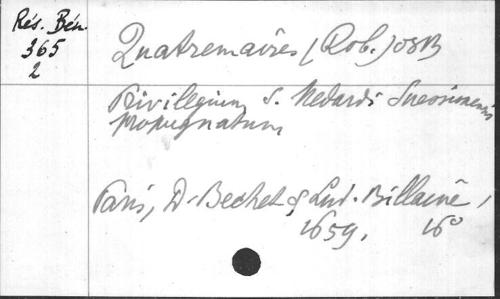 Rés. Bén.
365
2
Quatremaires (Rob.) OSB
Privilegium S. Medardi Suessionensis
propugnatum
Paris, D. Bechet & Lud. Billaine,
1659. 16°